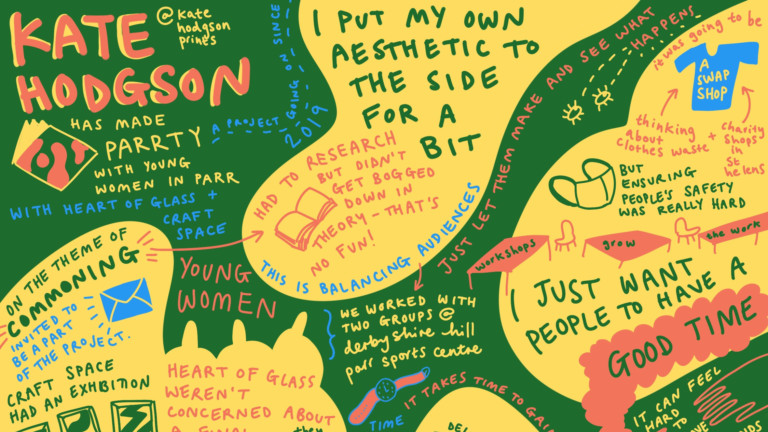 KATE
HODGSON
@kate
hodgson
prints
HAS MADE
PARRTY
WITH YOUNG
WOMEN IN PARR
WITH HEART OF GLASS +
CRAFT
SPACE
A PROJECT GOING ON SINCE
2019
I PUT MY OWN
AESTHETIC TO
THE SIDE
FOR A
BIT
HAD TO RESEARCH
BUT DIDN'T
GET BOGGED
DOWN IN
THEORY - THAT'S
NO FUN!
THIS IS BALANCING AUDIENCES
JUST LET THEM MAKE AND SEE WHAT
HAPPENS
it was going to be
A
SWAP
SHOP
thinking
about
clothes waste
+
charity
shops
in
st
helens
BUT
ENSURING
PEOPLE'S SAFETY
WAS REALLY HARD
workshops
grow
the work
I JUST WANT
PEOPLE TO HAVE A
GOOD TIME
ON THE THEME OF
COMMONING
INVITED TO
BE A PART
OF THE PROJECT.
CRAFT SPACE
HAD AN EXHIBITION
YOUNG
WOMEN
WE WORKED WITH
TWO GROUPS @
derbyshire hill
parr sports centre
HEART OF GLASS
WEREN'T
CONCERNED ABOUT
A FINAL
they
TIME
IT TAKES TIME TO GAI
DEL
IT CAN FEEL
HARD
TO